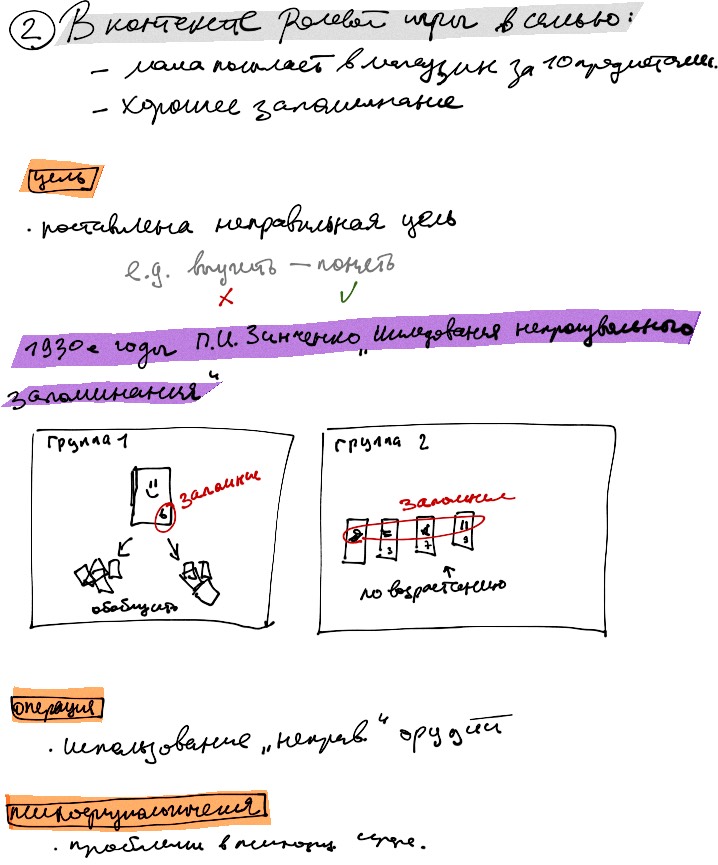 2 В контексте ролевой игры в семью:
– мама посылает в магазин за 10 предметами.
– хорошее запоминание
цель
· поставлена неправильная цель
e.g. выучить – понять
✗ ✓
1930е годы П.И. Зинченко „Исследования непроизвольного
запоминания“
Группа 1
запомние
6
обобщить
Группа 2
запомние
3 7 9
по возрастению
операция
· использование „неправ“ орудий
психофизиологичения
· проблемы в